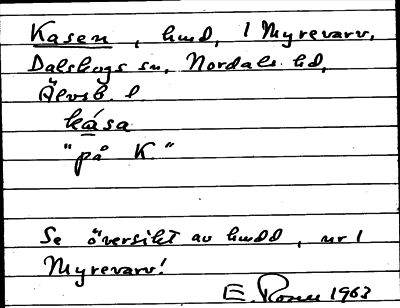 Kasen, hmd, 1 Myrevarv,
Dalskogs sn, Nordals hd,
Älvsb. l.
kása
"på K."
Se översikt av hmdd, nr 1
Myrevarv!
E. Rosen 1963